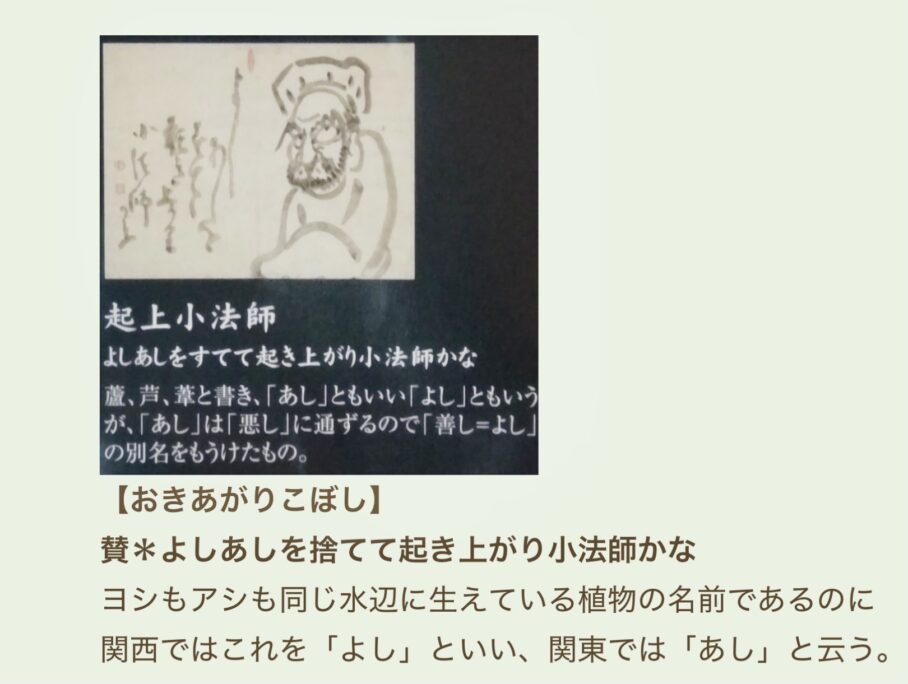 起上小法師
よしあしをすてて起き上がり小法師かな
蘆、芦、葦と書き、「あし」ともいい「よし」ともいう
が、「あし」は「悪し」に通ずるので「善し=よし」
の別名をもうけたもの。
【おきあがりこぼし】
賛＊よしあしを捨てて起き上がり小法師かな
ヨシもアシも同じ水辺に生えている植物の名前であるのに
関西ではこれを「よし」といい、関東では「あし」と云う。